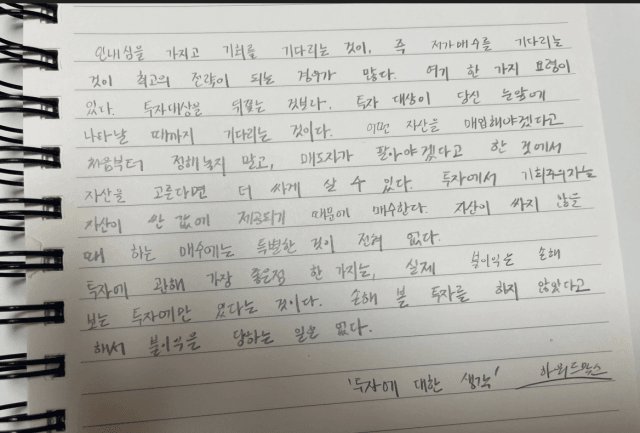 인내심을 가지고 기회를 기다리는 것이, 즉 저가매수를 기다리는
것이 최고의 전략이 되는 경우가 많다. 여기 한 가지 요령이
있다. 투자대상을 뒤쫓는 것보다. 투자 대상이 당신 눈앞에
나타날 때까지 기다리는 것이다. 어떤 자산을 매입해야겠다고
처음부터 정해놓지 말고, 매도자가 팔아야겠다고 한 것에서
자산을 고른다면 더 싸게 살 수 있다. 투자에서 기회주의자는
자산이 싼 값에 제공되기 때문에 매수한다. 자산이 싸지 않을
때 하는 매수에는 특별한 것이 전혀 없다.
투자에 관해 가장 좋은점 한 가지는, 실제 불이익은 손해
보는 투자에만 있다는 것이다. 손해 볼 투자를 하지 않았다고
해서 불이익을 당하는 일은 없다.
'투자에 대한 생각' 하워드막스